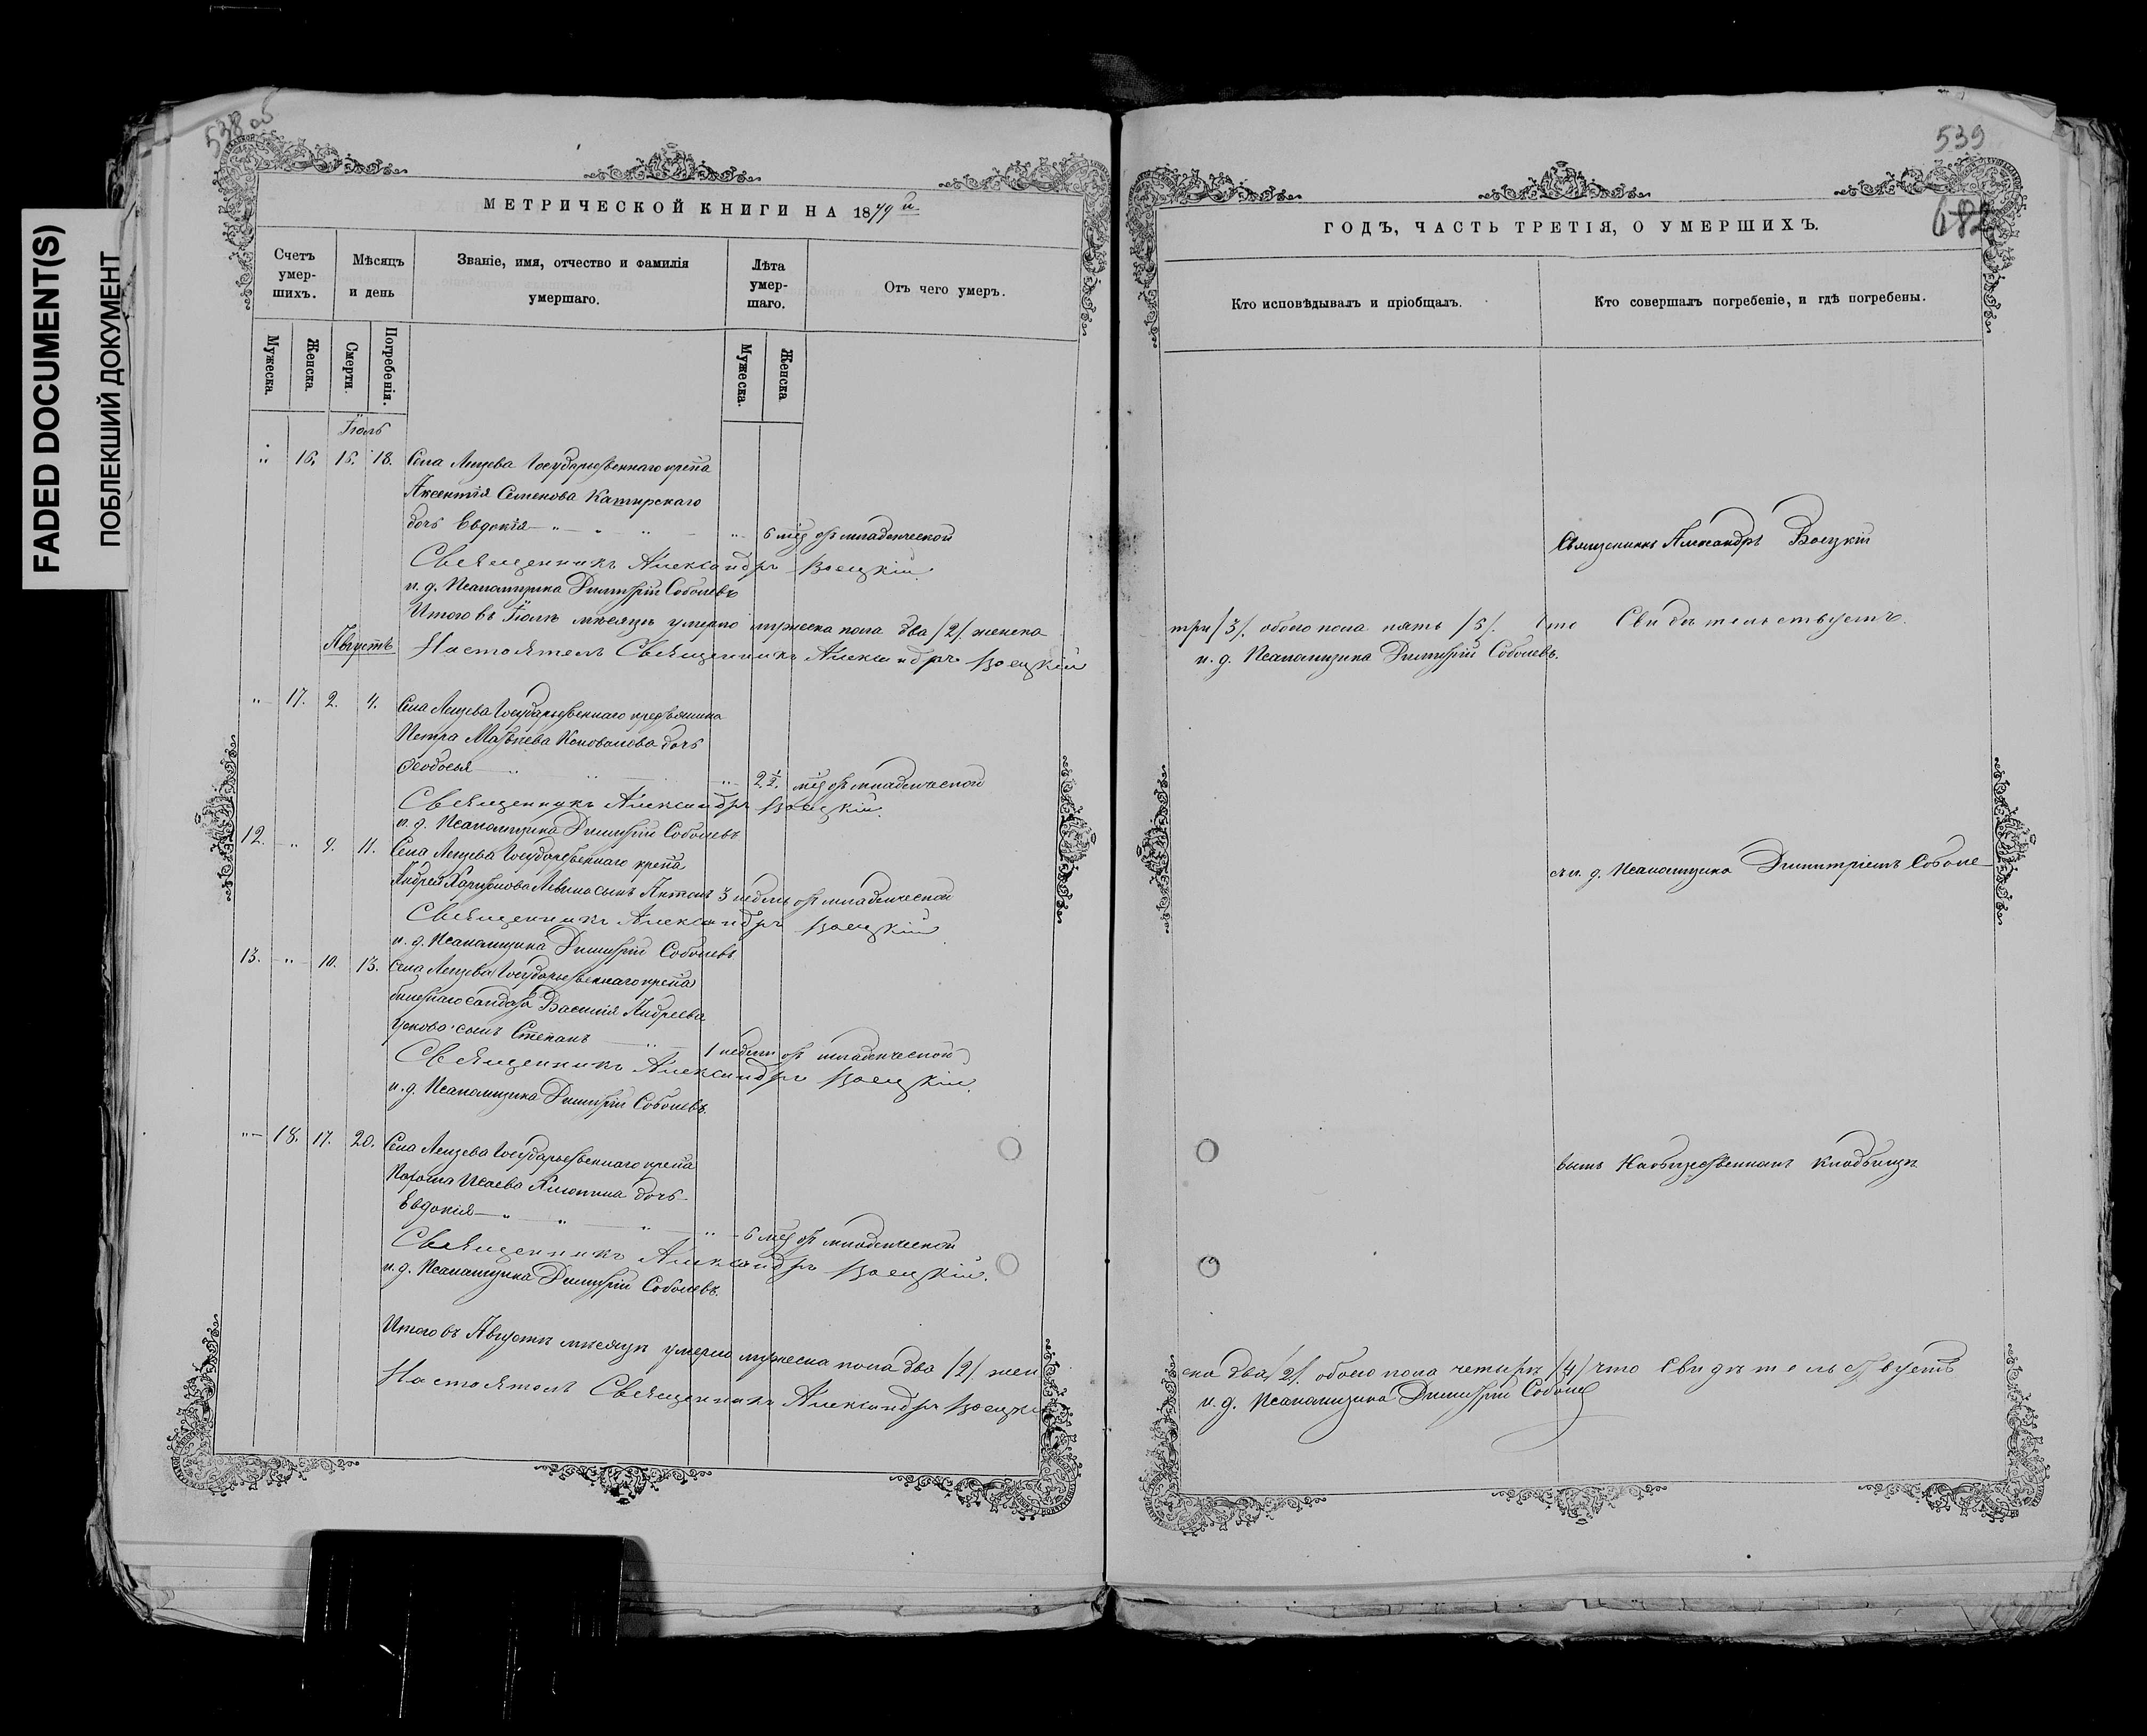 FADED DOCUMENT(S)
ПОБЛЕКШИЙ ДОКУМЕНТ
538 об
МЕТРИЧЕСКОЙ КНИГИ НА 1879 й
Счетъ умер-
шихъ.
Мѣсяцъ
и день
Званіе, имя, отчество и фамилія
умершаго.
Лѣта
умер-
шаго.
Отъ чего умеръ.
Мужеска.
Женска.
Смерти.
Погребенія.
Мужеска.
Женска
Іюль
" 16. 15. 18. Села Государственнаго крест.
Аксентія Семенова
дочь Евдокія " " " " 6 мѣс. отъ младенческой
Священникъ Александръ Воецкій
и. д. Псаломщика Димитрій Соболевъ
Итого въ Іюлѣ мѣсяцѣ умерло мужеска пола два /2/. женска
Августъ Настоятель Священникъ Александръ Воецкій
" 17. 2. 4. Села Государственнаго крестьянина
Петра Матвѣева Коновалова дочь
Ѳеодосья " " " 2 1/2. мѣс. отъ младенческой
Священникъ Александръ Воецкій.
и. д. Псаломщика Димитрій Соболевъ
12. " 9. 11. Села Государственнаго крест.
Андрея сынъ Антонъ 3 недѣль отъ младенческой
Священникъ Александръ Воецкій
и. д. Псаломщика Димитрій Соболевъ
13. " 10. 13. Села Государственнаго крест.
Василія Андреева
сынъ Степанъ " 1 недѣли отъ младенческой
Священникъ Александръ Воецкій.
и. д. Псаломщика Димитрій Соболевъ.
" 18. 17. 20. Села Государственнаго крест.
Исаева дочь
Евдокія " " " " 6 мѣс. отъ младенческой
Священникъ Александръ Воецкій.
и. д. Псаломщика Димитрій Соболевъ.
Итого въ Августѣ мѣсяцѣ умерло мужеска пола два /2/ жен
Настоятель Священникъ Александръ Воецкі
539
682
ГОДЪ, ЧАСТЬ ТРЕТІЯ, О УМЕРШИХЪ.
Кто исповѣдывалъ и пріобщалъ.
Кто совершалъ погребеніе, и гдѣ погребены.
Священникъ Александръ Воецкій
три /3/. обоего пола пять /5/. Что Свидѣтельствуетъ.
и. д. Псаломщика Димитрій Соболевъ.
съ и. д. Псаломщика Димитріемъ Соболе-
вымъ На общественномъ кладбищѣ
ска два /2/. обоего пола четыре /4/ что Свидѣтельствуетъ
и. д. Псаломщика Димитрій Соболев